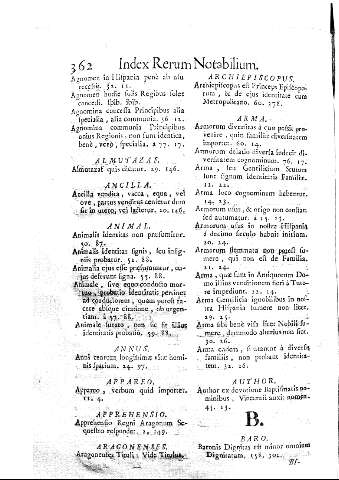 362 Index Rerum Notabilium.
Agnomen in Hispania penè ab alio
recessit. 52. 11.
Agnomen hodie solis Regibus solet
concedi. ibib. ibib.
Agnomina concessa Principibus alia
specialia, alia communia. 56 12.
Agnomina communia Principibus
unius Regionis, non sunt identica,
benè, verò, specialia. à 77. 17.
ALMUTAZAS.
Almutazas quis dicatur. 29. 146.
ANCILLA.
Ancilla vendita, vacca, equa, vel
ove, partus venditus censetur dum
sit in utero, vel lactetur. 20. 146.
ANIMAL.
Animalis identitas non præsumitur.
50. 87.
Animalis identitas signis, seu insig-
nijs probatur. 51. 88.
Animalia ejus esse præsumuntur, cu-
jus deferunt signa. 53. 88.
Animale, sive equo conducto mor-
tuo, probatio identitatis pertinet
ad conductorem, quam potest fa-
cere absque citatione, ob urgen-
tiam. à 57. 88.
Animale furato, non sic sit illius
identitatis probatio. 59. 88.
ANNUS.
Anni centum longissimæ vitæ homi-
nis spatium. 24. 97.
APPAREO.
Appareo, verbum quid importet.
11. 4.
APPREHENSIO.
Apprehensio Regni Aragonum Se-
questro respondet. 2. 149.
ARAGONENSES.
Aragonensis Tituli: Vide Titulus.
ARCHIEPISCOPUS.
Archiepiscopus est Princeps Episcopo-
rum, & de ejus identitate cum
Metropolitano. 60. 178.
ARMA.
Armorum diversitas à quo possit pro-
venire, quin familiæ diversitatem
importet. 60. 14.
Armorum delatio diversa inducit di-
versitatem cognominum. 76. 17.
Arma, seu Gentilitium Scutum
sunt signum identitatis Familiæ.
11. 22.
Arma loco cognominum habentur.
14. 23.
Armorum usus, & origo non constant
sed autumatur. à 14. 23.
Armorum usus in nostra Hispania
à decimo sæculo habuit initium.
20. 24.
Armorum stemmata non potest su-
mere, qui non est de Familia.
21. 24.
Arma, quæ sunt in Antiquorum Do-
mo illius venditionem fieri à Tuto-
re impediunt. 22. 24.
Arma Gentilicia ignobilibus in nos-
tra Hispania sumere non licet.
29. 25.
Arma sibi benè visa licet Nobili su-
mere, dummodo alterius non sint.
30. 26.
Arma eadem, si utantur à diversis
familiis, non probant identita-
tem. 32. 26.
AUTHOR.
Author ex devotione Baptismatis no-
minibus, Vincentij auxit nomen.
43. 13.
B.
BARO.
Baronis Dignitas est minor omnium
Dignitatum. 158. 301.